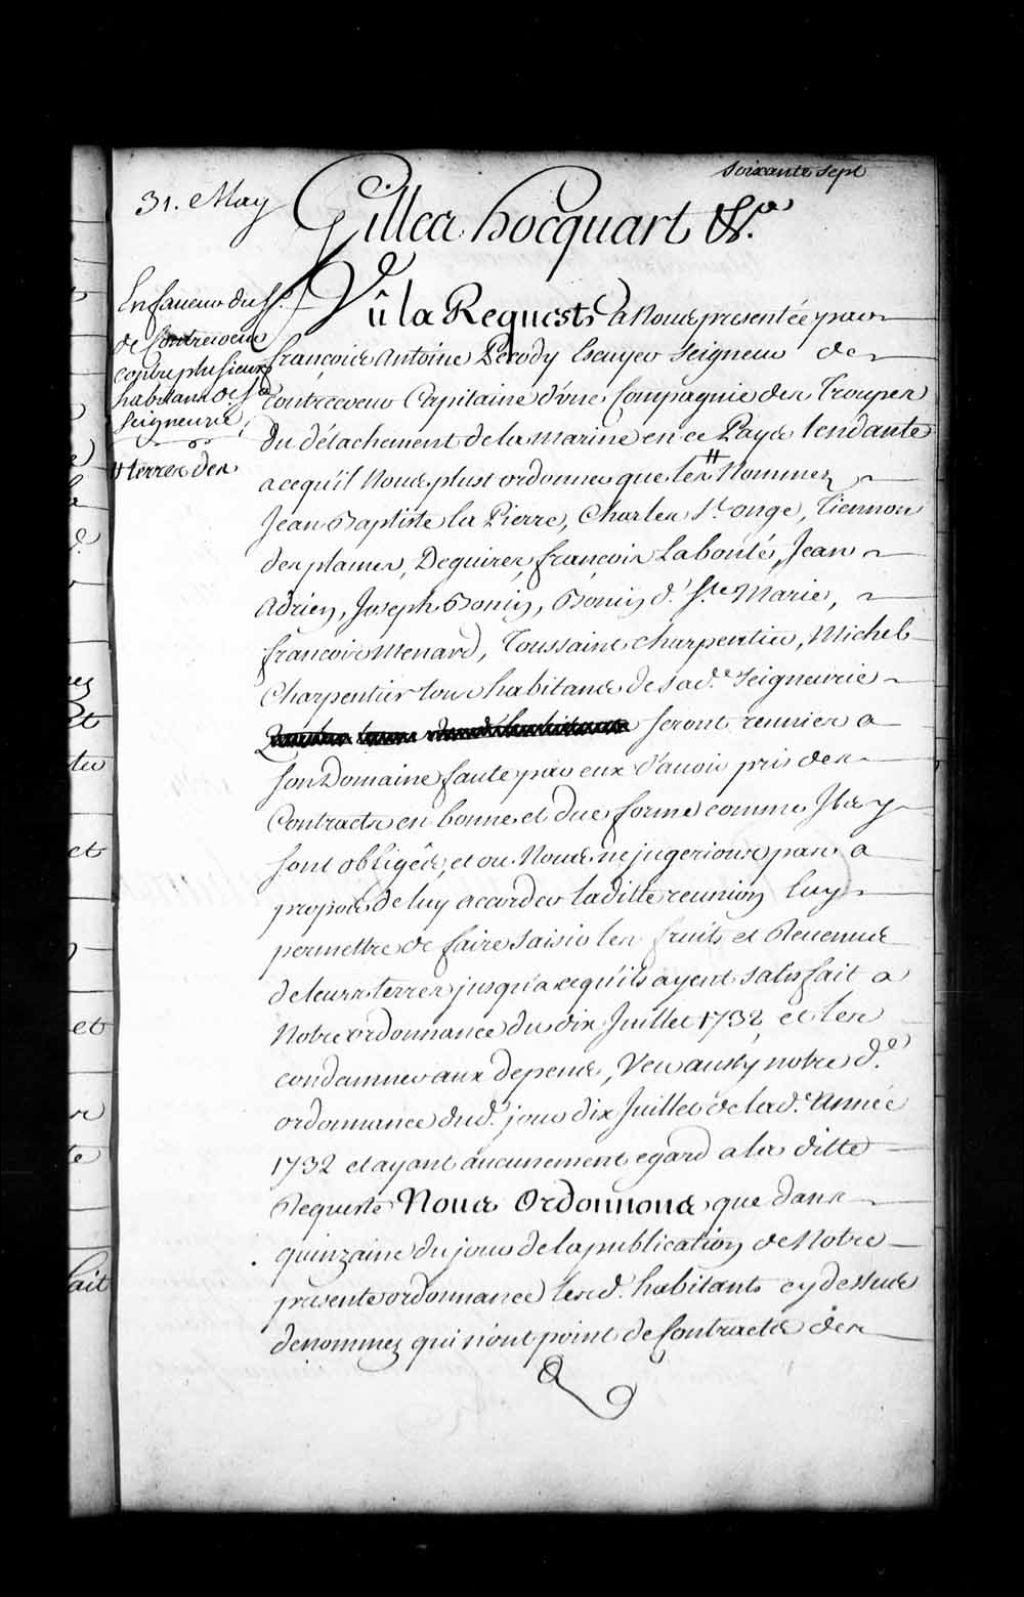 soixante sept
31. May
Gilles hocquart &.ª
En faveur du Sr.
de Contrecoeur
contre plusieurs
habitans de sa
Seigneurie
Vû la Requeste a Nous presentée par
françois Antoine Pecody Escuyer Seigneur de
Contrecoeur Capitaine d'une Compagnie des Troupes
du détachement de la marine en ce Pays tendante
# terres des
a ce qu'il Nous plust ordonner que les # Nommez
Jean Baptiste la Pierre, Charles St. onge, Tiennon
desplaines, Deguires, françois Labonté, Jean
Adrien, Joseph Bonin, Bonin d. Ste Marie,
francois Menard, Toussaint Charpentier, Michel
Charpentier tous habitans de sad.e Seigneurie
seront reunies a
son Domaine faute par eux d'avoir pris des
Contracts en bonne et due forme comme Ils y
sont obligés, et ou Nous ne jugerions pas a
propos de luy accorder laditte reunion luy
permettre de faire saisir les fruits et Revenus
de leurs terres jusqu'a ce qu'ils ayent satisfait a
Notre ordonnance du dix Juillet 1732, et les
condamner aux depens, Veu aussy notre d.e
ordonnance dud. jour dix Juillet de lad. Année
1732 et ayant aucunement egard a la ditte
Requeste Nous Ordonnons que dans
quinzaine du jour de la publication de Notre
presente ordonnance lesd. habitants cy dessus
denommez qui n'ont point de Contracts des
et
et
ait